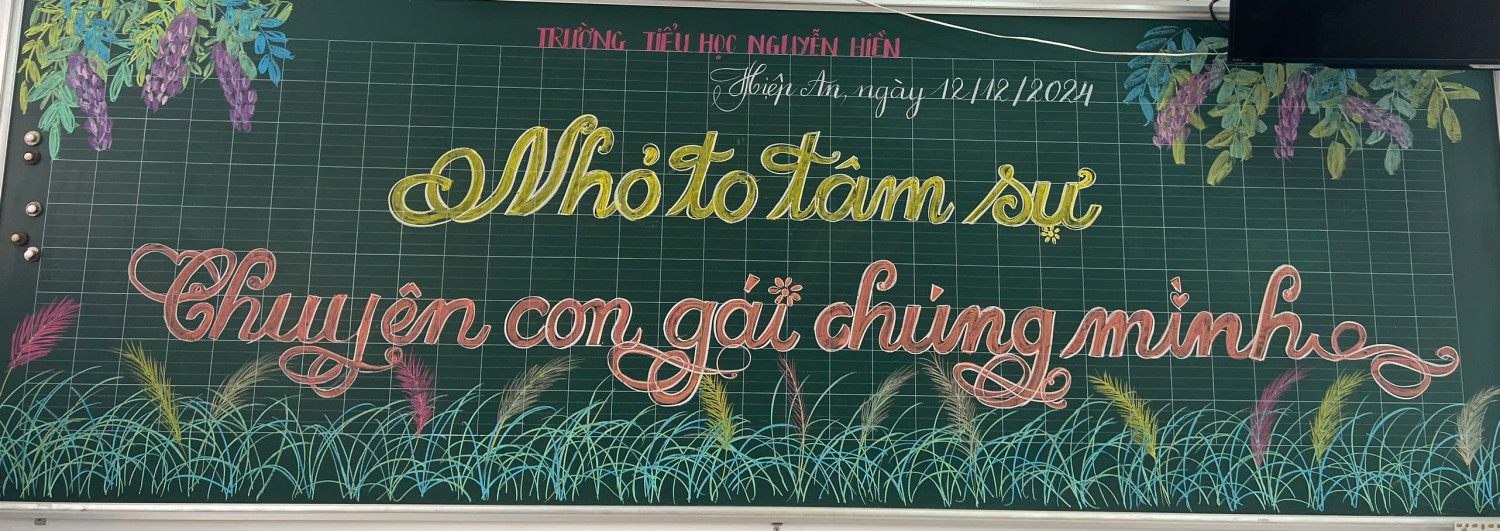 TRƯỜNG TIỂU HỌC NGUYỄN HIỀN
Hiệp An, ngày 12/12/2024
Nhỏ to tâm sự
Chuyện con gái chúng mình